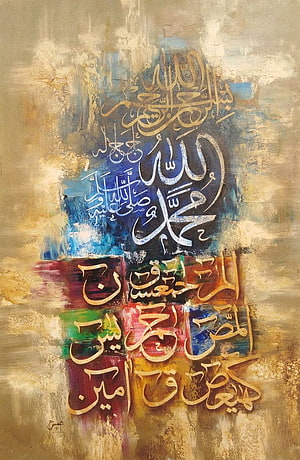 بسم الله الرحمن الرحيم
جل جلاله
الله
صلى الله عليه وسلم
محمد
المر حمعسق ن
المص حم يس
كهيعص ق امين